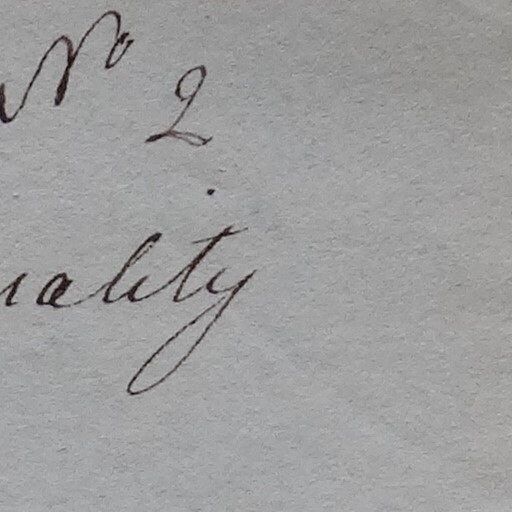 No 2
uality